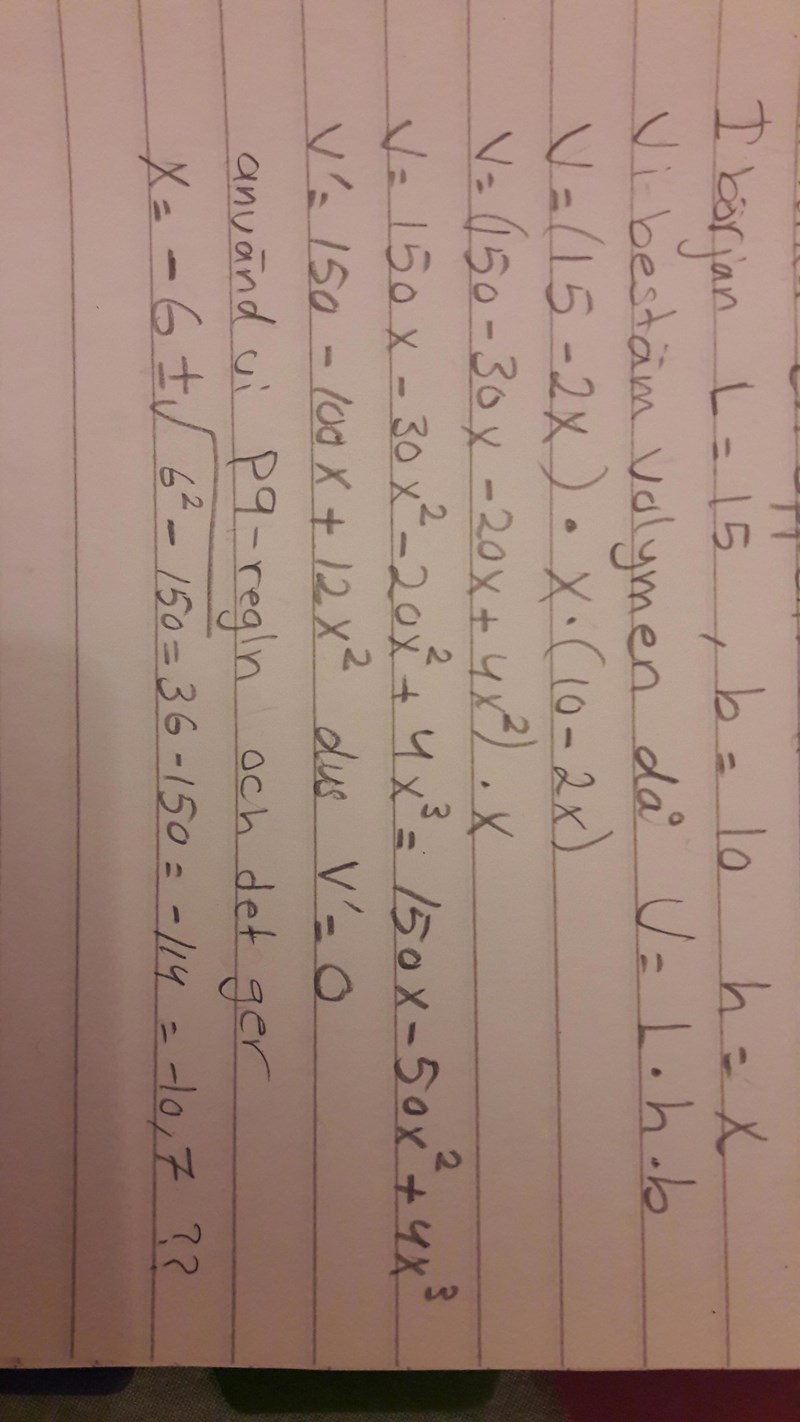 I början L = 15 , b = 10 h = x
Vi bestäm volymen då V = L · h · b
V = (15 - 2x) · x · (10 - 2x)
V = (150 - 30x - 20x + 4x²) · x
V = 150x - 30x² - 20x² + 4x³ = 150x - 50x² + 4x³
V' = 150 - 100x + 12x² dvs V' = 0
använd vi pq-regln och det ger
x = - 6 ± √6² - 150 = 36 - 150 = -114 = -10,7 ??